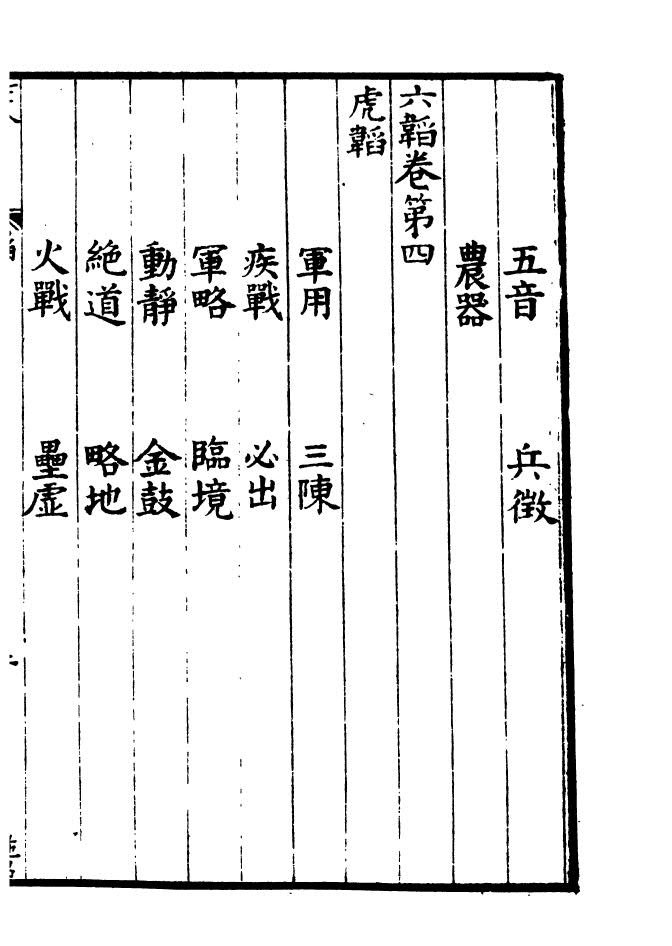 五音 兵徵
農器
六韜卷第四
虎韜
軍用 三陳
疾戰 必出
軍略 臨境
動靜 金鼓
絶道 略地
火戰 壘虛